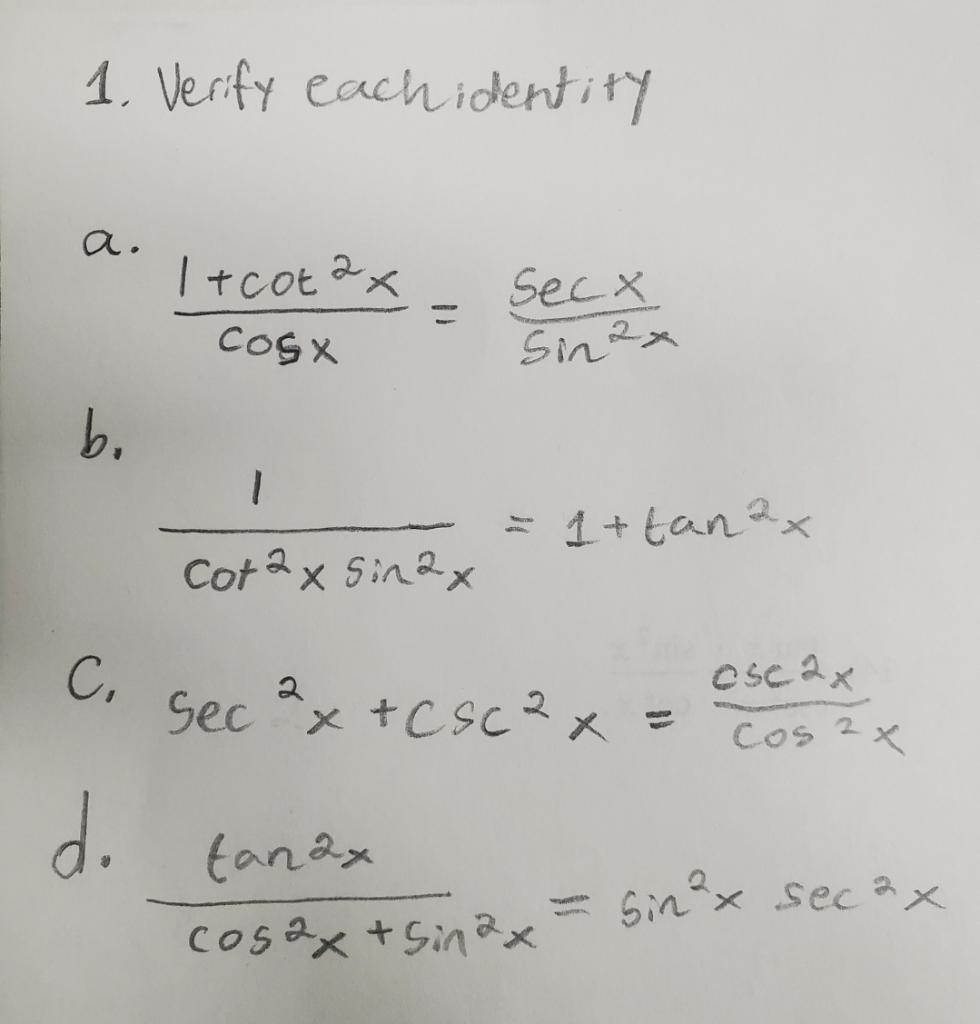 1. Verify each identity
a.
(1 + cot²x) / (cos x) = (sec x) / (sin²x)
b.
1 / (cot²x sin²x) = 1 + tan²x
c. sec²x + csc²x = (csc²x) / (cos²x)
d. (tan²x) / (cos²x + sin²x) = sin²x sec²x